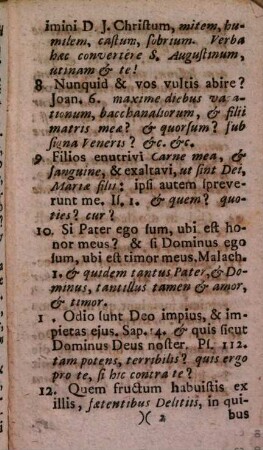 imini D. J. Christum, mitem, hu-
milem, castum, sobrium. Verba
hæc convertere S. Augustinum,
utinam & te!
8. Nunquid & vos vultis abire?
Joan. 6. maxime diebus va ati-
onum, bacchanaliorum, & filii
matris meæ? & quorsum? sub
signa Veneris? &c. &c.
9. Filios enutrivi Carne mea, &
sanguine, & exaltavi, ut sint Dei,
Mariæ filii: ipsi autem spreve-
runt me. Is. 1. & quem? quo-
ties? cur?
10. Si Pater ego sum, ubi est ho-
nor meus? & si Dominus ego
sum, ubi est timor meus. Malach.
1. & quidem tantus Pater, & Do-
minus, tantillus tamen & amor,
& timor.
1 . Odio sunt Deo impius, & im-
pietas ejus. Sap. 14. & quis sicut
Dominus Deus noster. Ps. 112.
tam potens, terribilis? quis ergo
pro te, si hic contra te?
12. Quem fructum habuistis ex
illis, fætentibus Delitiis, in qui-
)( 2 bus